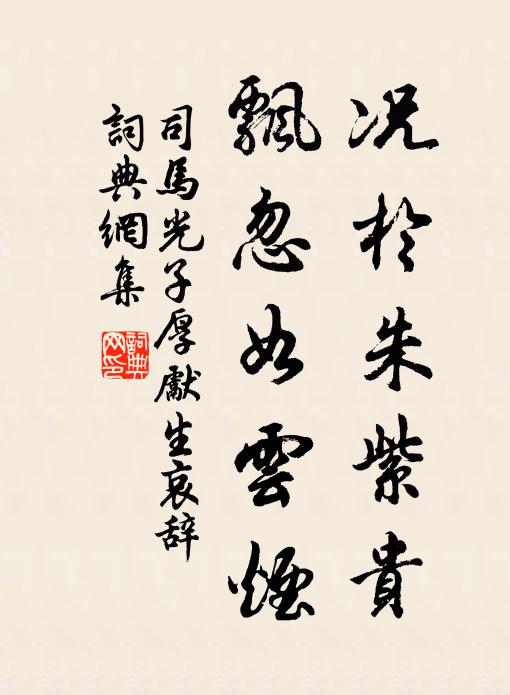 况於朱紫貴
飄忽如雲煙
司馬光子厚獻生哀辞
詞典網集
詞典网印